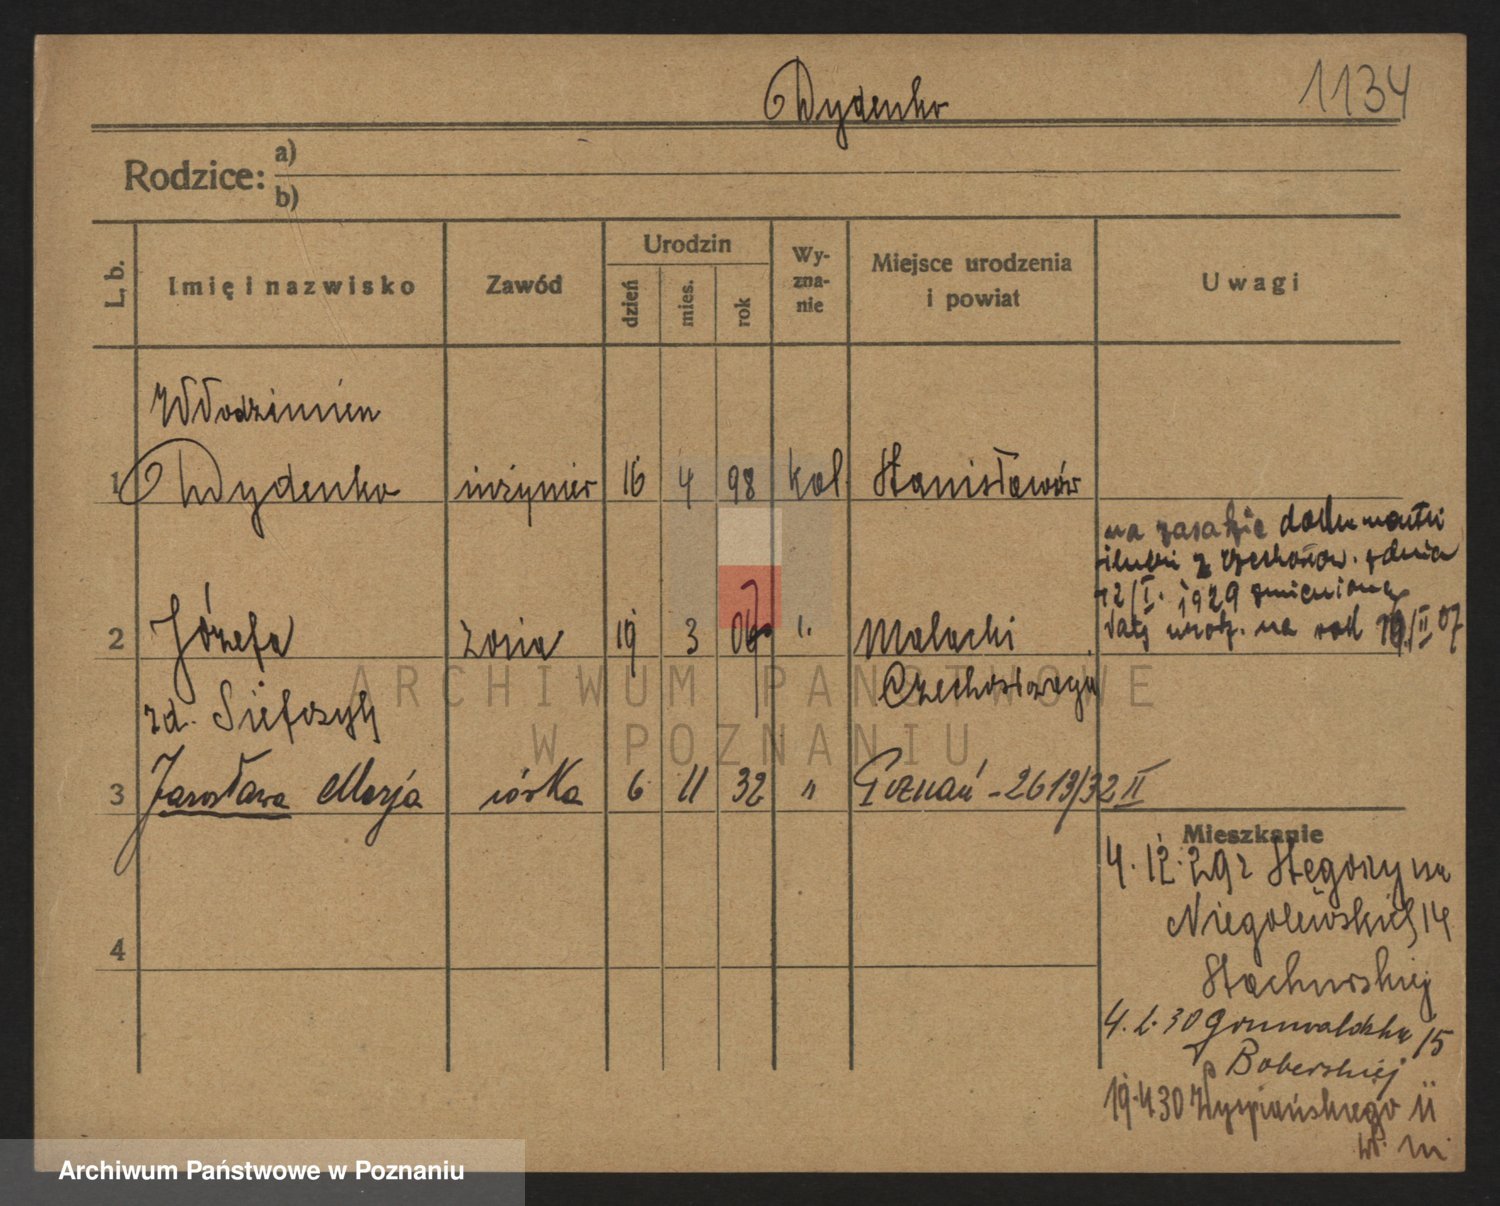 Wydenko
1134
Rodzice: a)
b)
L. b.
Imię i nazwisko
Zawód
Urodzin
dzień
mies.
rok
Wy-
zna-
nie
Miejsce urodzenia
i powiat
Uwagi
Włodzimierz
1 Wydenko inżynier 16 4 98 kat. Stanisławów
na zasadzie dokumentu
ślubu z Czechosłow. z dnia
12/I. 1929 zmieniono
datę urodz. na rok 19./II 07
2 Józefa żona 19 3 06 ". Malacki
Czechosłowacja
zd.
3 Jarosława Marja córka 6 11 32 " Poznań - 2613/32 II
4
Mieszkanie
4. 12. 29 z Stęgoszyna
Niegolewskich 14
Stachurskiej
4. 2. 30 Grunwaldzka 15
p Boberskiej
19.4 30 Wyspiańskiego 11
ARCHIWUM PAŃSTWOWE
W POZNANIU
Archiwum Państwowe w Poznaniu